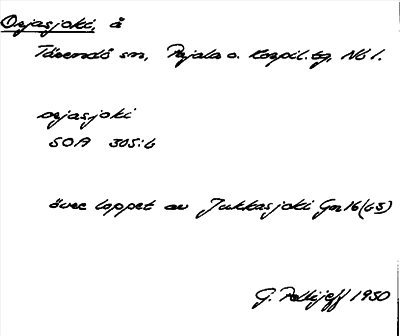 Orjasjoki, å
Tärendö sn, Pajala o. Korpil. tg, Nb l.
orjasjoki
SOA 305:6
övre loppet av Jukkasjoki Gm 16 (GS)
G. Pellijeff 1950